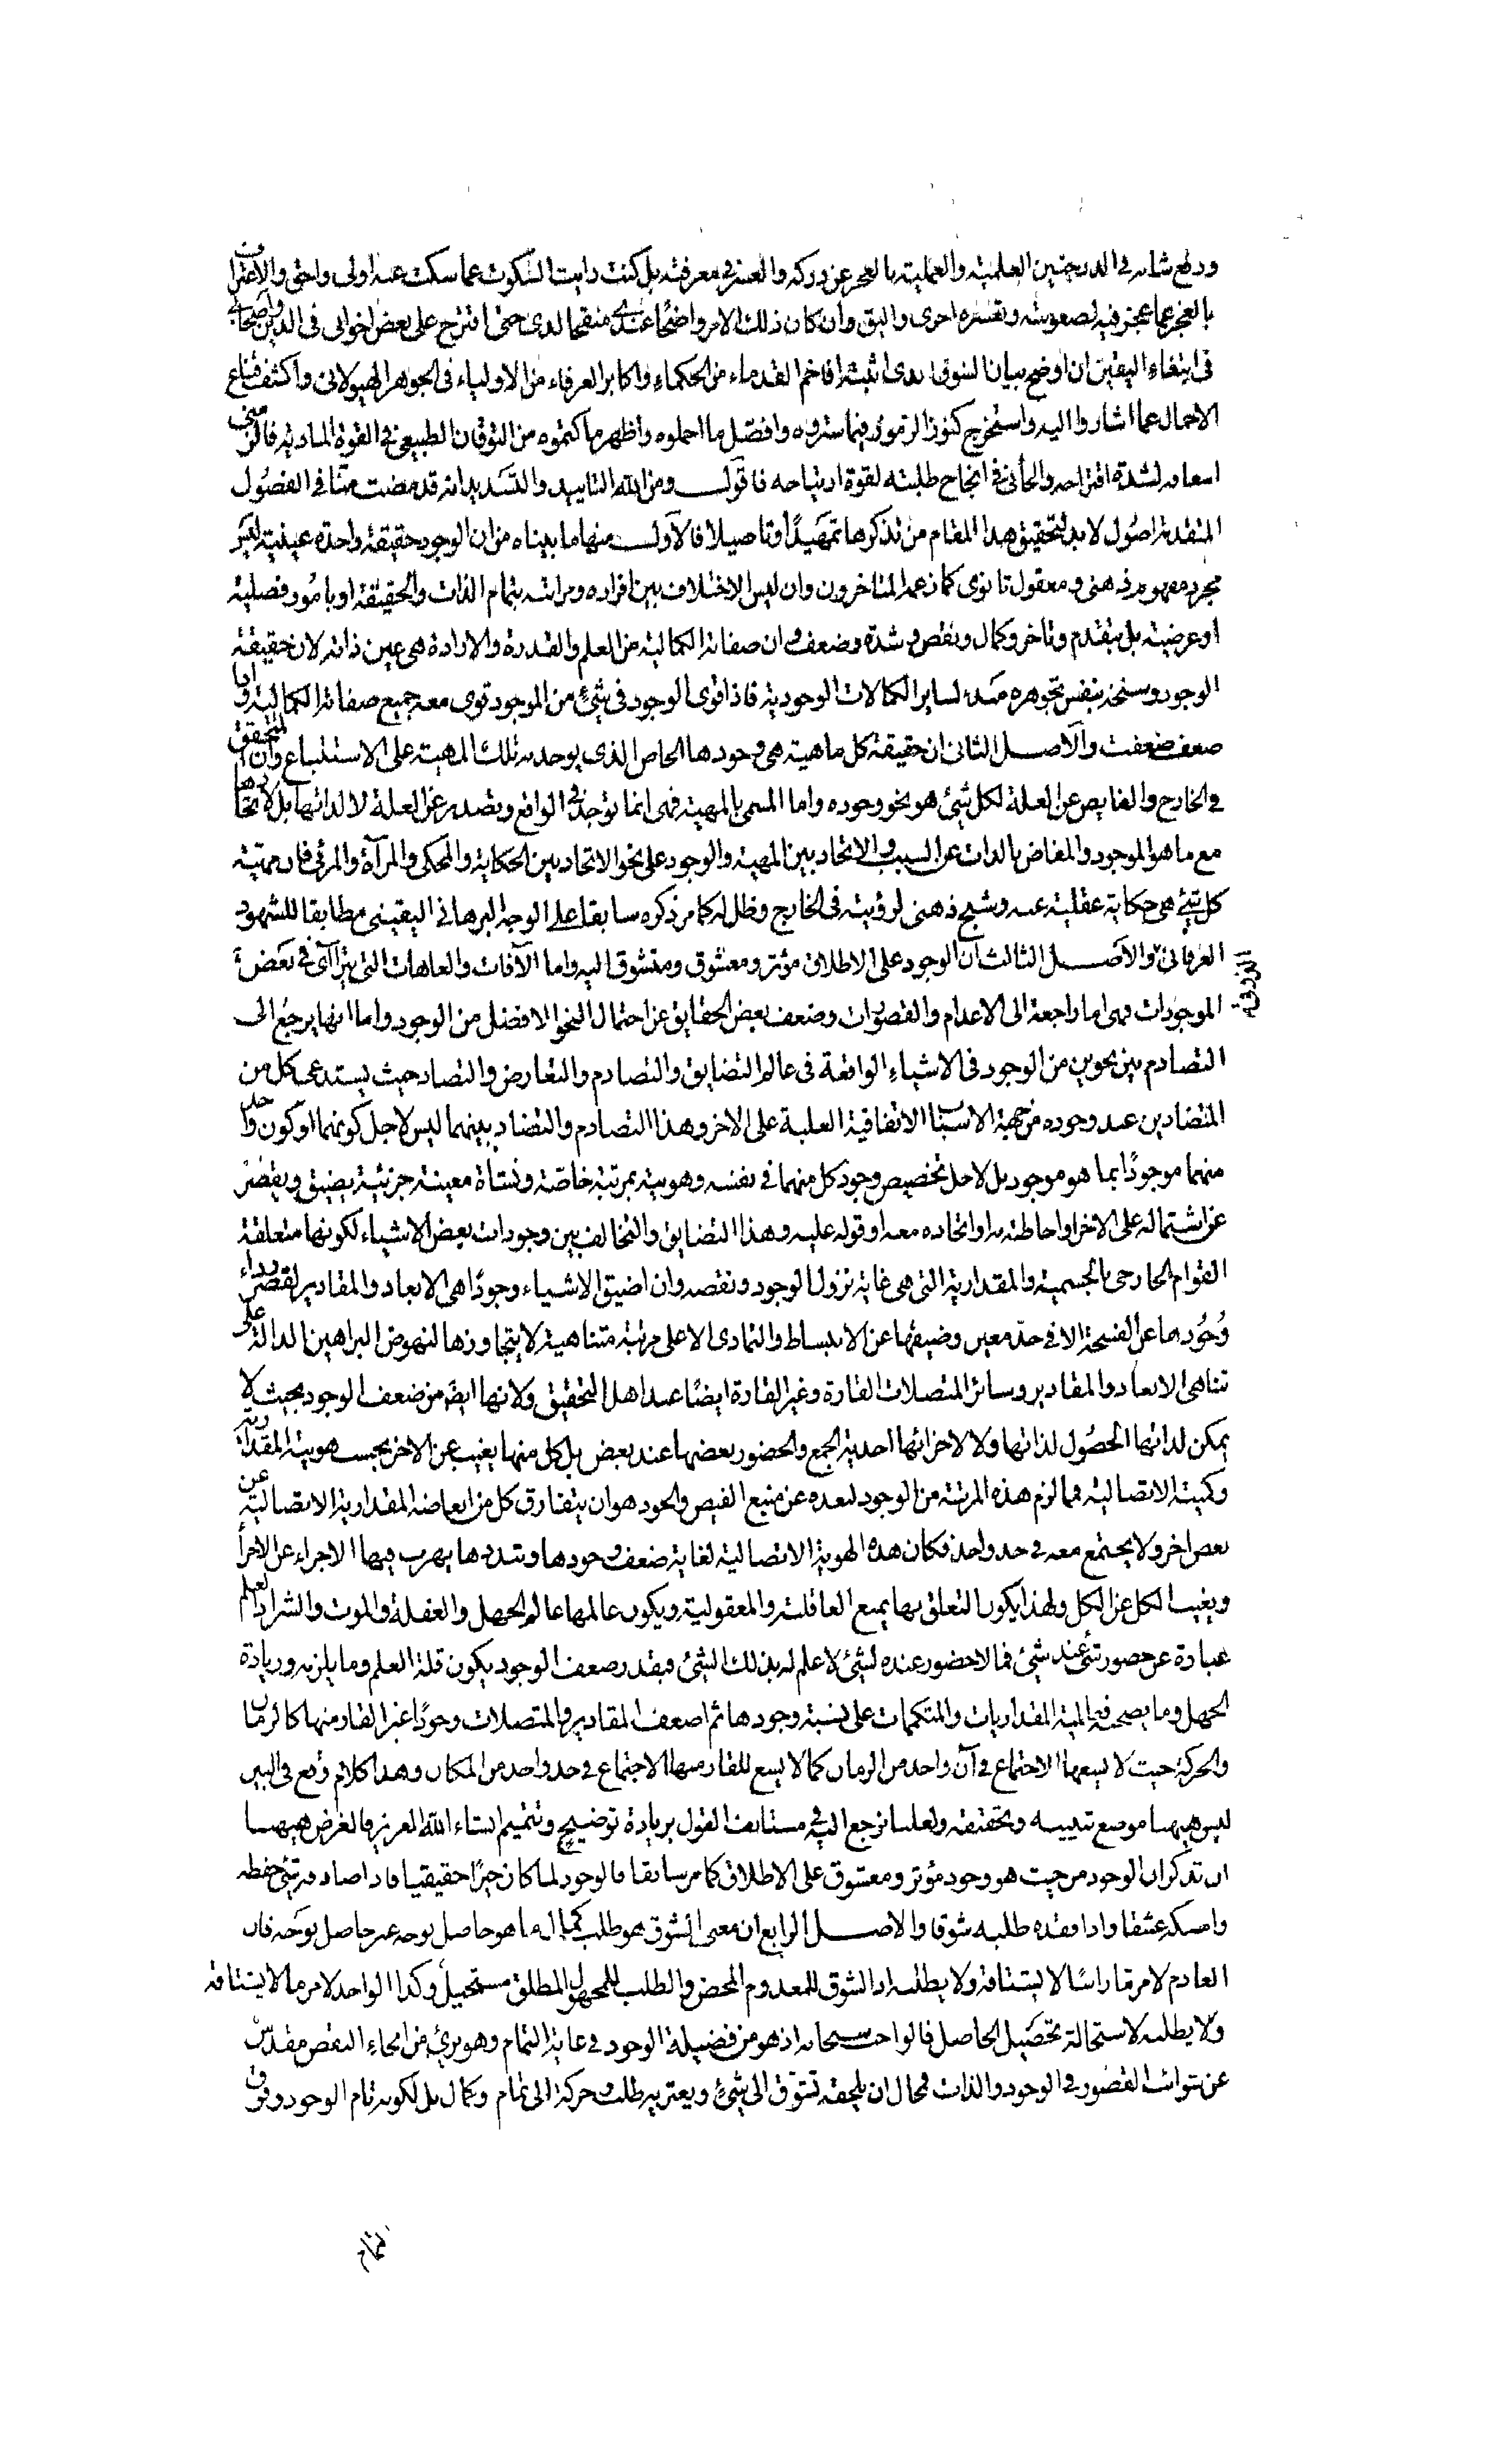 ورفع شانه فى الدرجتين العلمية والعملية بالعجز عن دركه والعسر فى معرفته بل كنت رايت السكوت عما سكت عنه اولى واحق والاعتراف
بالعجز عما عجز فيه لصعوبته وتعسره احرى واليق وان كان ذلك الامر واضحا عندى منقحا لدى حتى اقترح على بعض اخوانى فى الدين واصحابى
فى ابتغاء اليقين ان اوضح بيان الشوق الذى اثبته افاخم القدماء من الحكماء واكابر العرفاء من الاولياء فى الجوهر الهيولانى واكشف قناع
الاجمال عما اشاروا اليه واستخرج كنوز الرموز فيما ستروه وافصل ما اجملوه واظهر ما كتموه من التوقان الطبيعى فى القوة المادية فالزمنى
اسعافه لشدة اقتراحه والجأنى فى انجاح طلبته لقوة ارتياحه فاقول ومن الله التاييد والتسديد انه قد مضت منا فى الفصول
المتقدمة اصول لا بد لتحقيق هذا المقام من تذكرها تمهيدا وتاصيلا فالاول منها ما بيناه من ان الوجود حقيقة واحدة عينية ليس
مجرد مفهوم ذهنى ومعقول ثانوى كما زعمه المتاخرون وان ليس الاختلاف بين افراده ومراتبه بتمام الذات والحقيقة او بامور فصلية
او عرضية بل بتقدم وتاخر وكمال ونقص وشدة وضعف وان صفاته الكمالية من العلم والقدرة والارادة هى عين ذاته لان حقيقة
الوجود وسنخه بنفس تجوهره مبدء لساير الكمالات الوجودية فاذا قوى الوجود فى شئ من الموجود قوى معه جميع صفاته الكمالية واذا
ضعف ضعفت والاصل الثانى ان حقيقة كل ماهية هى وجودها الخاص الذى يوجد به تلك المهية على الاستتباع وان المتحقق
فى الخارج والفايض عن العلة لكل شئ هو نحو وجوده واما المسمى بالمهية فهى انما توجد فى الواقع وتصدر عن العلة لا لذاتها بل لاتحادها
مع ما هو الموجود والمفاض بالذات عن السبب والاتحاد بين المهية والوجود على نحو الاتحاد بين الحكاية والمحكى والمرآة والمرئى فان مهية
كل شئ هى حكاية عقلية عنه وشبح ذهنى لرؤيته فى الخارج وظل له كما مر ذكره سابقا على الوجه البرهانى اليقينى مطابقا للشهود
العرفانى الذوقى والاصل الثالث ان الوجود على الاطلاق مؤثر ومعشوق ومتشوق اليه واما الآفات والعاهات التى يتراآى فى بعض
الموجودات فهى اما راجعة الى الاعدام والقصورات وضعف بعض الحقايق عن احتمال النحو الافضل من الوجود واما انها يرجع الى
التصادم بين نحوين من الوجود فى الاشياء الواقعة فى عالم التضايق والتصادم والتعارض والتضاد حيث يستدعى كل من
المتضادين عند وجوده من جهة الاسباب الاتفاقية الغلبة على الاخر وهذا التصادم والتضاد بينهما ليس لاجل كونهما او كون واحد
منهما موجودا بما هو موجود بل لاجل تخصيص وجود كل منهما فى نفسه وهويته بمرتبة خاصة ونشاة معينة جزئية يضيق ويقصر
عن اشتماله على الاخر او احاطته به او اتحاده معه او قوله عليه وهذا التضايق والتخالف بين وجودات بعض الاشياء لكونها متعلقة
القوام الخارجى بالجسمية والمقدارية التى هى غاية نزول الوجود ونقصه وان اضيق الاشياء وجودا هى الابعاد والمقادير لقصر رداء
وجودها عن الفسحة الا فى حد معين وضيقها عن الانبساط والتمادى الا على مرتبة متناهية لا يتجاوزها لنهوض البراهين الدالة على
تناهى الابعاد والمقادير وسائر المتصلات القارة وغير القارة ايضا عند اهل التحقيق ولانها ايضا من ضعف الوجود بحيث لا
يمكن لذاتها الحصول لذاتها ولا لاجزائها احدية الجمع والحضور بعضها عند بعض بل كل منها يغيب عن الاخر بحسب هويته المقدارية
وكميته الاتصالية فما لزم هذه المرتبة من الوجود لبعده عن منبع الفيض والجود هو ان يتفارق كل من ابعاضه المقدارية الاتصالية عن
بعض اخر ولا يجتمع معه فى حد واحد فكان هذه الهوية الاتصالية لغاية ضعف وجودها وتبددها يهرب فيها الاجزاء عن الاجزاء
ويغيب الكل عن الكل ولهذا يكون التعلق بها يمنع العاقلية والمعقولية ويكون عالمها عالم الجهل والغفلة والموت والشر اذ العلم
عبارة عن حضور شئ عند شئ فما لا حضور عنده لشئ لا علم له بذلك الشئ فبقدر ضعف الوجود يكون قلة العلم وما يلزمه وزيادة
الجهل وما يصحبه فى المقداريات والمتكممات على نسبة وجودها ثم اضعف المقادير والمتصلات وجودا غير القار منها كالزمان
والحركة حيث لا يسعها الاجتماع فى آن واحد من الزمان كما لا يسع للقار منها الاجتماع فى حد واحد من المكان وهذا كلام وقع فى البين
ليس ههنا موضع تبيينه وتحقيقه ولعلنا نرجع اليه فى مستانف القول بزيادة توضيح وتتميم انشاء الله العزيز فالغرض ههنا
ان تذكر ان الوجود من حيث هو وجود مؤثر ومعشوق على الاطلاق كما مر سابقا فالوجود لما كان خيرا حقيقيا فاذا صادفه شئ حفظه
وامسكه عشقا واذا فقده طلبه شوقا والاصل الرابع ان معنى الشوق هو طلب كمال ما هو حاصل بوجه غير حاصل بوجه فان
العادم لامر ما راسا لا يشتاقه ولا يطلبه اذ الشوق للمعدوم المحض والطلب للمجهول المطلق مستحيل وكذا الواجد لامر ما لا يشتاقه
ولا يطلبه لاستحالة تحصيل الحاصل فالواجب سبحانه اذ هو من فضيلة الوجود فى غاية التمام وهو برئ من انحاء النقص مقدس
عن شوائب القصور فى الوجود والذات فمحال ان يلحقه تشوق الى شئ ويعتريه طلب وحركة الى تمام وكمال بل لكونه تام الوجود وفوق
التمام